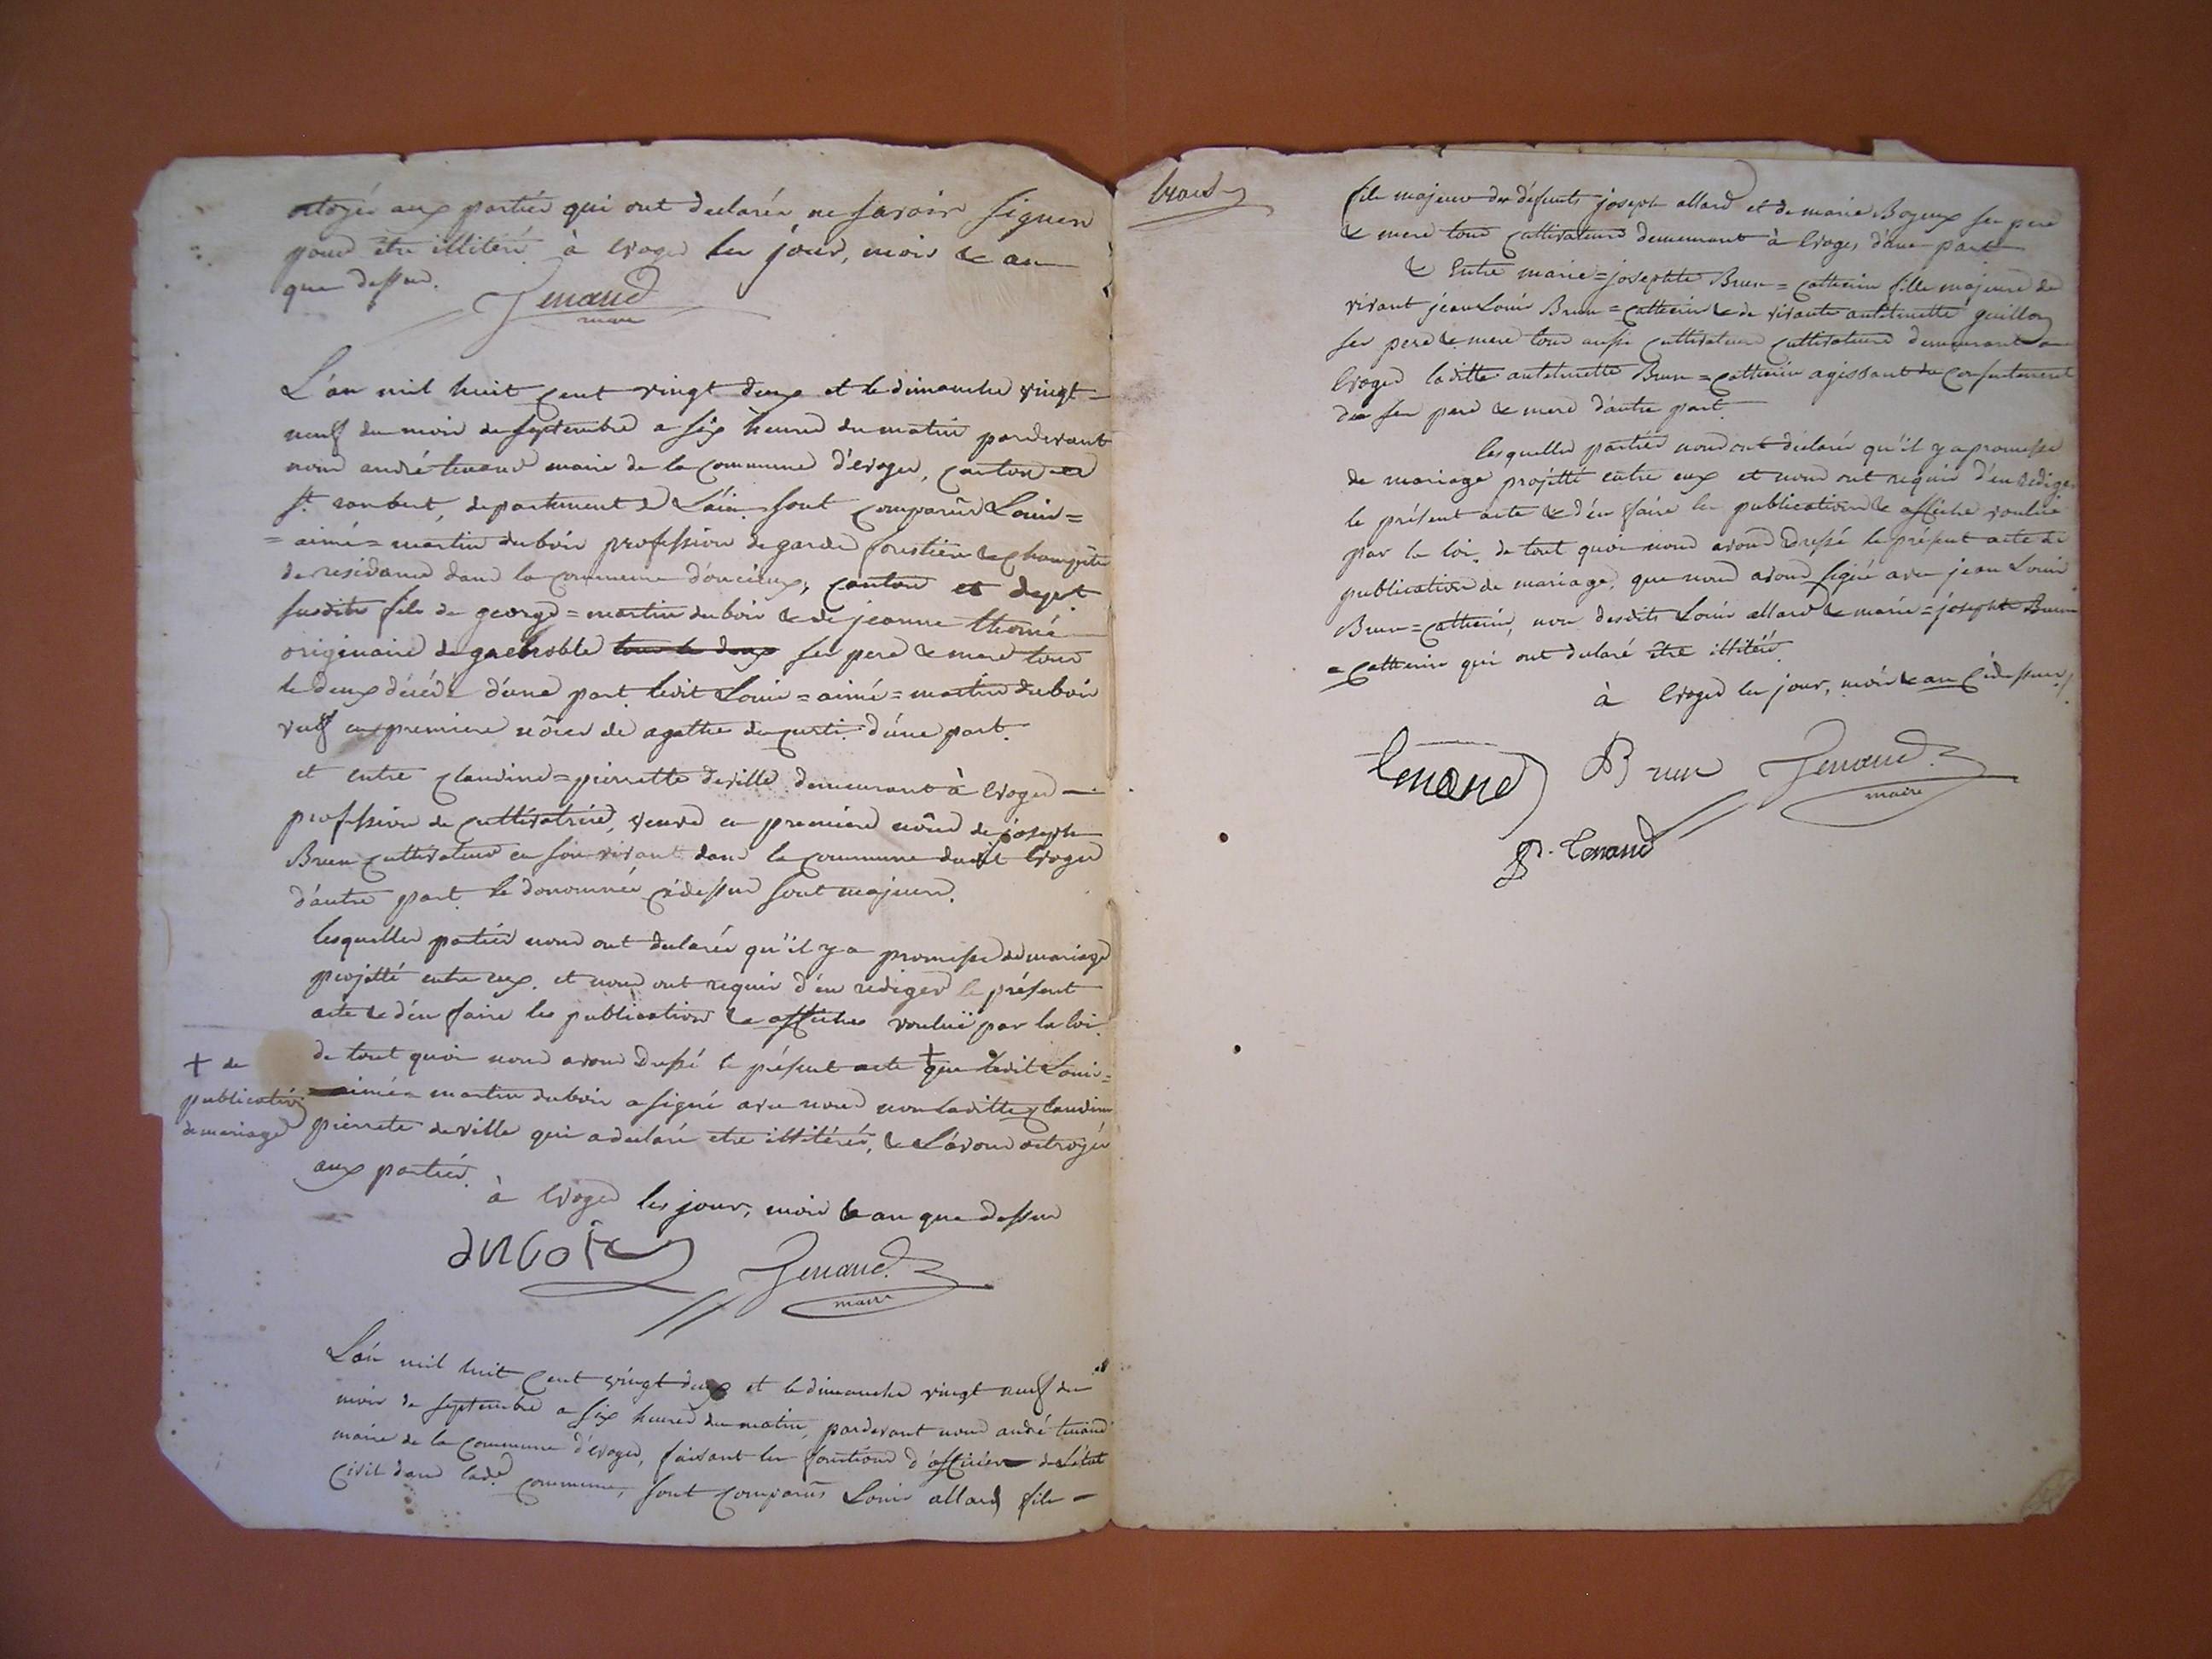 octoyés aux partiés qui ont declarés ne savoir signer
pour être illitéré à Evoges les jour, mois & an
que dessus.
Tenand
maire
L'an mil huit cent vingt deux et le dimanche vingt
neuf du mois de septembre a six heures du matin pardevant
nous andré tenand maire de la commune d'évoges, canton de
st. rambert, departement de L'ain sont comparûs Louis=
=aimé=martin dubois profession de garde forestier & champêtre
de residance dans la commune d'oncieux, canton et dept
susdits fils de george=martin dubois & de jeanne thomé
originaire de grenoble tous les deux ses pere & mere tous
les deux décédés d'une part. ledit Louis=aimé=martin dubois
veuf en premiere nôces de agathe du curti d'une part.
et entre claudine=pierrette deville demeurant à Evoges
profession de cultivatrice, veuve en premiere nôces de joseph
Brun cultivateur en son vivant dans la commune dudit Evoges
d'autre part. le denommés cidessus sont majeurs.
lesquelles partiés nous ont declarés qu'il y a promesse de mariage
projetté entre eux. et nous ont requis d'en rediger le présent
acte & d'en faire les publications & affiches vouluë par la loi.
de tout quoi nous avons dressé le présent acte + que ledit Louis=
+ de
publication
de mariage
=aimé=martin dubois a signé avec nous non laditte claudine
pierrete deville qui a declaré etre illitérés, & L'avons octroyés
aux partiés.
à Evoges les jour, mois & an que dessus
dubois
Tenand
maire
L'an mil huit cent vingt deux et le dimanche vingt neuf du
mois de septembre a six heures du matin, pardevant nous andré tenand
maire de la commune d'évoges, faisant les fonctions d'officier de L'état
civil dans lade. commune, sont comparûs Louis allard fils
fils majeur des défunts joseph allard et de marie Bozeux ses pere
& mere tous cultivateurs demeurant à Evoges, d'une part
& Entre marie=josephte Brun=catherin fille majeure de
vivant jean Louis Brun=catherin & de vivante anthelmette guillon
ses pere & mere tous aussi cultivateurs cultivateurs demeurant a
Evoges laditte anthelmette Brun=catherin agissant du consentement
de ses pere & mere d'autre part.
lesquelles partiés nous ont déclarés qu'il y a promesse
de mariage projetté entre eux et nous ont requis d'en rediger
le présent acte & d'en faire les publications & affiches vouluë
par la loi. de tout quoi nous avons dressé le présent acte de
publication de mariage, que nous avons signé avec jean Louis
Brun=catherin, non desdits Louis allard & marie=josephte Brun
=catherin qui ont declaré être illitéré.
à Evoges les jour, mois & an cidessus
tenand
Brun
Tenand
maire
P. tenand